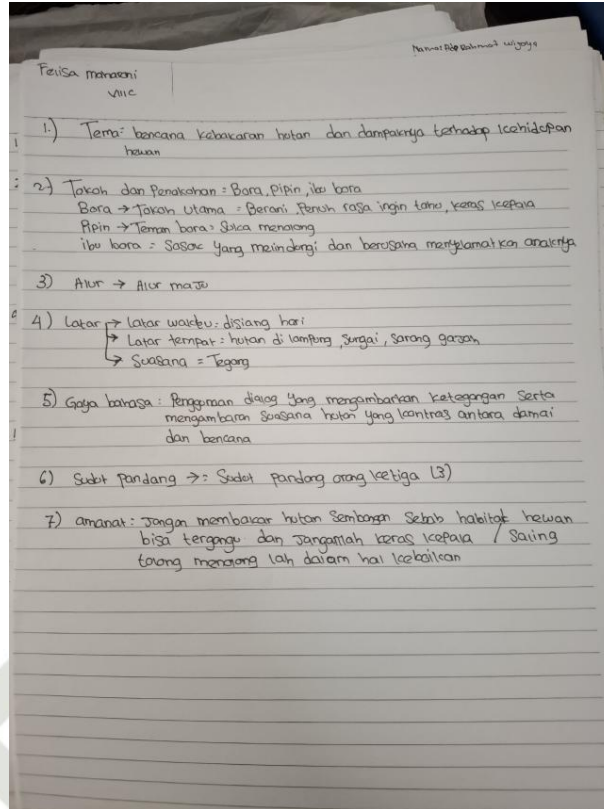 Nama: Ade Rahmat Wijaya
Felisa monaroni
VIII C
1.) Tema: bencana kebakaran hutan dan dampaknya terhadap kehidupan
hewan
2) Tokoh dan Penokohan = Bora, Pipin, ibu bora
Bora → Tokoh utama = Berani, Penuh rasa ingin tahu, keras kepala
Pipin → Teman bora = Suka menolong
ibu bora = Sosok yang melindungi dan berusaha menyelamatkan anaknya
3) Alur → Alur maju
4) Latar → latar waktu: disiang hari
→ Latar tempat: hutan di lampung, sungai, sarang gajah
→ Suasana = Tegang
5) Gaya bahasa: Penggunaan dialog yang mengambarkan ketegangan Serta
mengambaran suasana hutan yang kontras antara damai
dan bencana
6) Sudut pandang →: Sudut pandang orang ketiga (3)
7) amanat: Jangan membakar hutan Sembangan Sebab habitat hewan
bisa tergangu dan Janganlah keras kepala / Saling
tolong menolong lah dalam hal kebaikan